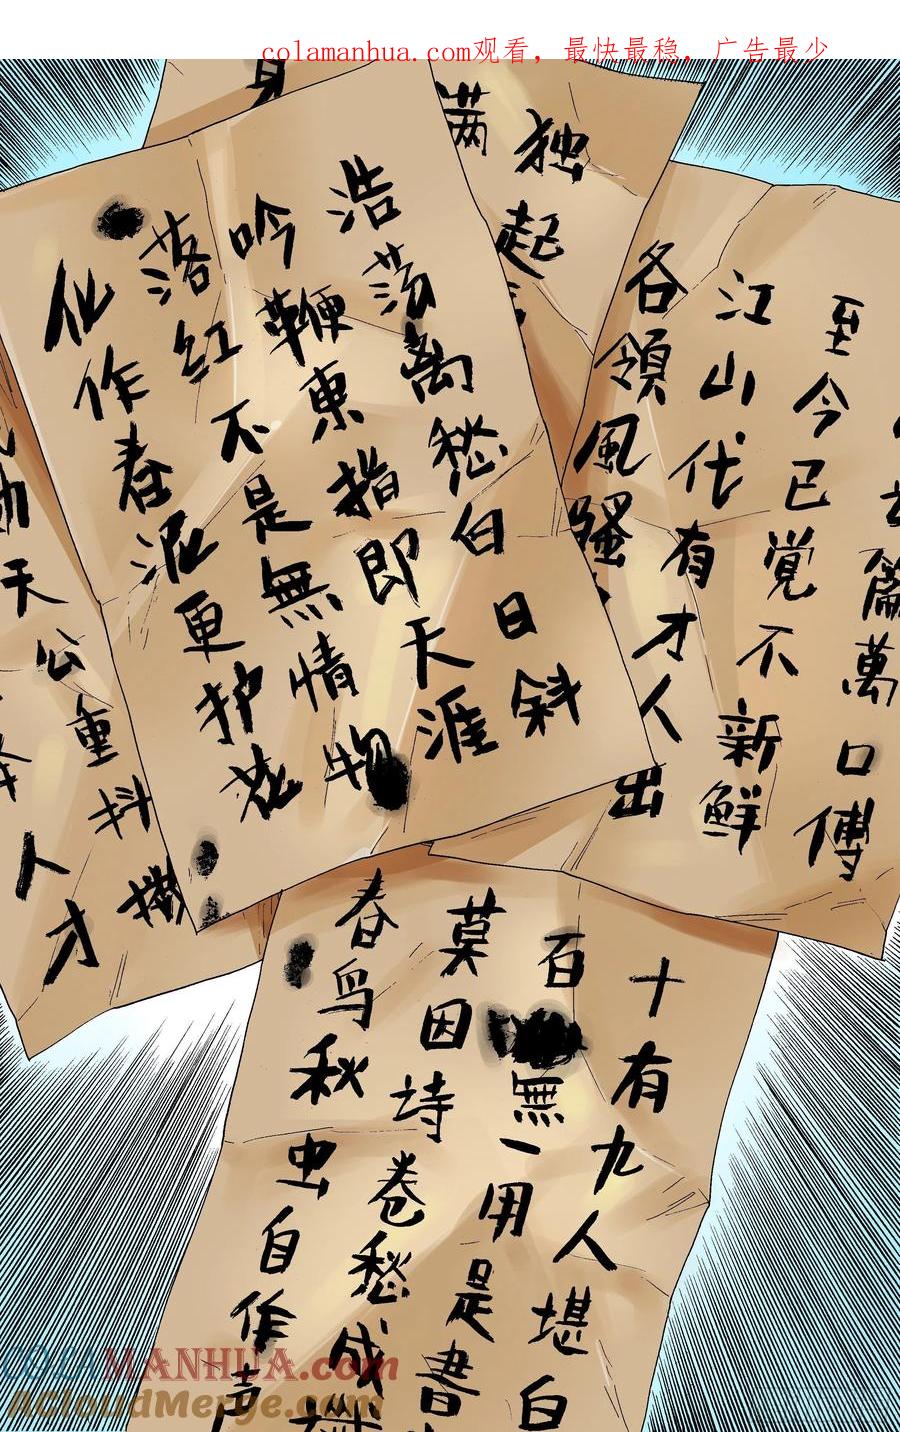 colamanhua.com观看，最快最稳，广告最少
满
独起
浩荡离愁白日斜
吟鞭東指即天涯
落红不是無情物
化作春泥更护花
篇萬口傅
至今已觉不新鮮
江山代有才人出
各領风騷
天公重抖擞
人才
十有九人堪白
百無一用是書
莫因诗卷愁成
春鸟秋虫自作声
COLAMANHUA.com
ACloudMerge.com